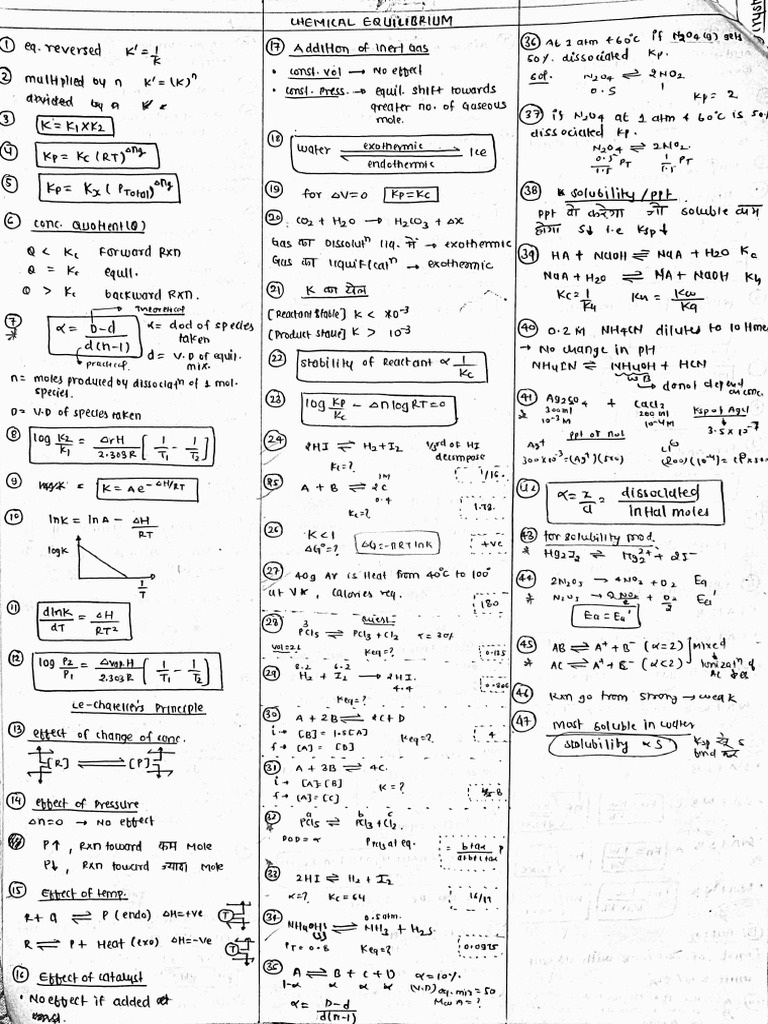 CHEMICAL EQUILIBRIUM
① eq. reversed K' = 1/K
② multiplied by n K' = (K)ⁿ
divided by n
③ K = K₁ x K₂
④ Kp = Kc (RT)^Δng
⑤ Kp = Kx (P Total)^Δng
⑥ conc. Quotient (Q)
Q < Kc Forward Rxn
Q = Kc equil.
Q > Kc backward Rxn.
⑦ theoretical
* α = D-d / d(n-1) α = dod of species taken
practical. d = V.D of equil. mix.
n = moles produced by dissociatⁿ of 1 mol. species.
D = V.D of species taken
⑧ log K₂/K₁ = ΔrH / 2.303R [ 1/T₁ - 1/T₂ ]
⑨ K = A e^-ΔH/RT
⑩ lnK = lnA - ΔH/RT
log K
1/T
⑪ dlnK/dT = ΔH/RT²
⑫ log P₂/P₁ = ΔvapH / 2.303R [ 1/T₁ - 1/T₂ ]
Le-chatelier's Principle
⑬ effect of change of conc.
[R] ⇌ [P]
⑭ effect of Pressure
Δn=0 → No effect
P↑, Rxn toward कम Mole
P↓, Rxn toward ज्यादा Mole
⑮ Effect of temp.
R + Q ⇌ P (endo) ΔH=+ve T
R ⇌ P + Heat (exo) ΔH=-ve T
⑯ Effect of catalyst
• No effect if added at
⑰ Addition of Inert Gas
• const. vol → No effect
• const. press. → equil. shift towards
greater no. of gaseous
mole.
⑱ water exothermic ⇌ endothermic Ice
⑲ for ΔV=0 Kp=Kc
⑳ CO₂ + H₂O → H₂CO₃ + Δx
Gas का Dissolutⁿ liq. में → exothermic
Gas का liquificalⁿ → exothermic
㉑ K का खेल
[Reactant Stable] K < 10⁻³
[Product stable] K > 10⁻³
㉒ stability of Reactant α 1/Kc
㉓ log Kp/Kc - Δn log RT = 0
㉔ 2HI ⇌ H₂ + I₂ 1/3rd of HI
decompose
Kc = ? 1/16.
㉕ A + B ⇌ 2C
1M
0.4
Kc = ? 1.78.
㉖ K < 1
ΔG° = ? ΔG = -nRT lnK +ve
㉗ 40g Ar is Heat from 40°C to 100°
at V*, calories req. 180
㉘ PCl₅ ⇌ PCl₃ + Cl₂ α = 20%
3
Keq = ? 0.125
㉙ 8.2 6.2
H₂ + I₂ → 2HI.
4.4
Keq = ?
㉚ A + 2B ⇌ 2C + D
i → [B] = 1.5[A] Keq = ? 4
f → [A] = [D]
㉛ A + 3B ⇌ 4C.
i → [A] = [B] K = ?
f → [A] = [C]
㉜ a b c
PCl₅ ⇌ PCl₃ + Cl₂.
DOD = α PPCl₃ at eq. = b+aα / a+b+c+aα P
㉝ 2HI ⇌ H₂ + I₂
α = ? Kc = 64 16/17
㉞ 0.5 atm.
NH₄OHS (s) ⇌ NH₃ + H₂S.
PT = 0.8 Keq = ?
㉟ A ⇌ B + C + D α = 10%
1-α α α α (V.D) eq. mix = 50
Mw A = ?
α = D-d / d(n-1)
㊱ At 1 atm & 60°C if N₂O₄(g) gets
50% dissociated Kp.
Sol. N₂O₄ ⇌ 2NO₂
0.5 1
Kp = 2
㊲ if N₂O₄ at 1 atm & 60°C is 50%
dissociated Kp.
N₂O₄ ⇌ 2NO₂.
0.5/1.5 PT 1/1.5 PT
㊳ solubility / ppt
ppt वो करेगा जो soluble कम
होगा S↓ i.e Ksp↓
㊴ HA + NaOH ⇌ NaA + H₂O Kc
NaA + H₂O ⇌ HA + NaOH Kh
Kc = 1/Kh Kh = Kw/Ka
㊵ 0.2 M NH₄CN diluted to 10 times
→ No change in pH
NH₄CN ⇌ NH₄OH + HCN
WB → do not depend
on conc.
㊶ Ag₂SO₄ + CaCl₂
* 300 ml 200 ml Ksp of AgCl
10⁻³M 10⁻⁴M
ppt or not
Ag⁺ Cl⁻
300x10⁻³ = (Ag⁺)(500)
㊷ α = x/a = dissociated / Initial moles
㊸ for solubility prod.
* Hg₂I₂ ⇌ Hg₂²⁺ + 2I⁻
㊹ 2N₂O₅ → 4NO₂ + O₂ Ea
* N₂O₅ → 2NO₂ + O₂/2 Ea'
Ea = Ea'
㊺ AB ⇌ A⁺ + B⁻ (α=2) Mixed
* AC ⇌ A⁺ + C⁻ (α<2) Ionizatⁿ of
㊻ Rxn go from strong → weak
㊼ most soluble in water
solubility α S